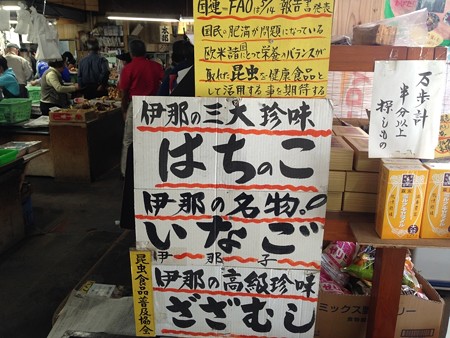 国連-FAOは5/14報告書発表
国民の肥満が問題になっている
欧米諸国にとって栄養のバランスが
取れて昆虫を健康食品と
して活用する事を期待する
伊那の三大珍味
はちのこ
伊那の名物。
いなご
伊那子
伊那の高級珍味
ざざむし
昆虫食品普及協会
万歩計
半分以上
探しもの
本醸
ミックス